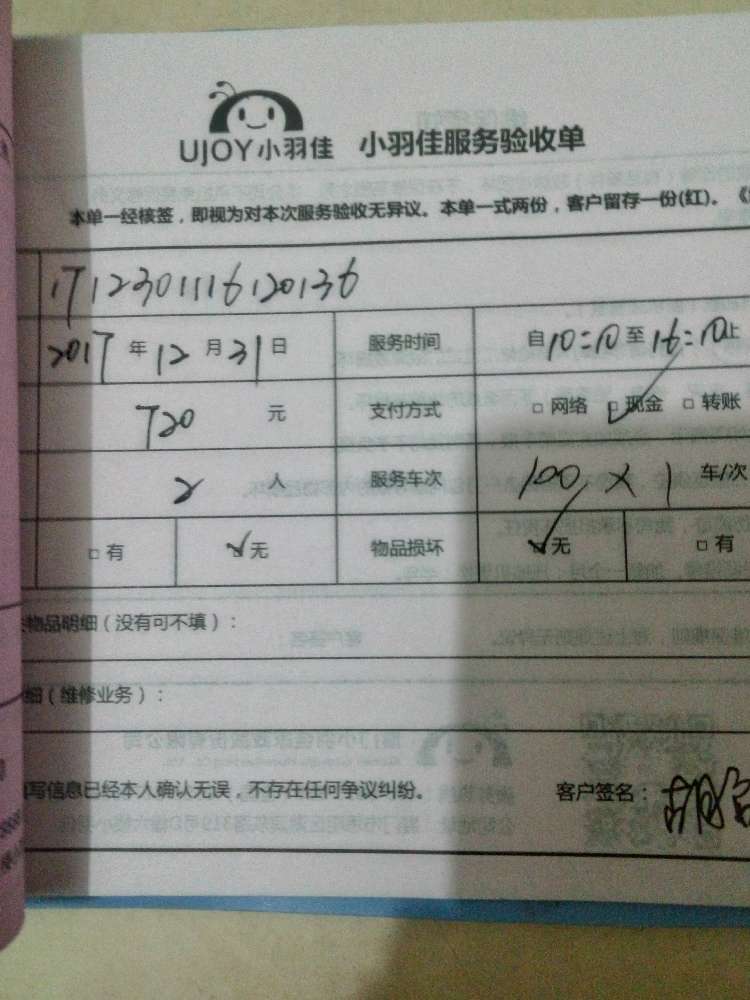 UJOY小羽佳 小羽佳服务验收单
本单一经核签，即视为对本次服务验收无异议。本单一式两份，客户留存一份(红)。《
1712301116120136
2017 年 12 月 31 日 服务时间 自 10:10 至 16:10 止
720 元 支付方式 □ 网络 ☑ 现金 □ 转账
2 人 服务车次 100 × 1 车/次
□ 有 ☑ 无 物品损坏 ☑ 无 □ 有
物品明细（没有可不填）：
细（维修业务）：
写信息已经本人确认无误，不存在任何争议纠纷。 客户签名： 胡